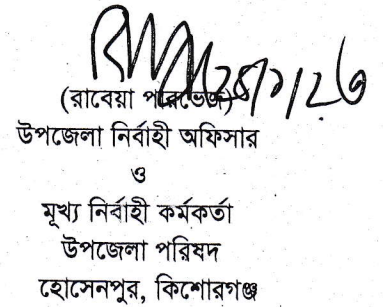 (রাবেয়া পারভেজ)
উপজেলা নির্বাহী অফিসার
ও
মূখ্য নির্বাহী কর্মকর্তা
উপজেলা পরিষদ
হোসেনপুর, কিশোরগঞ্জ